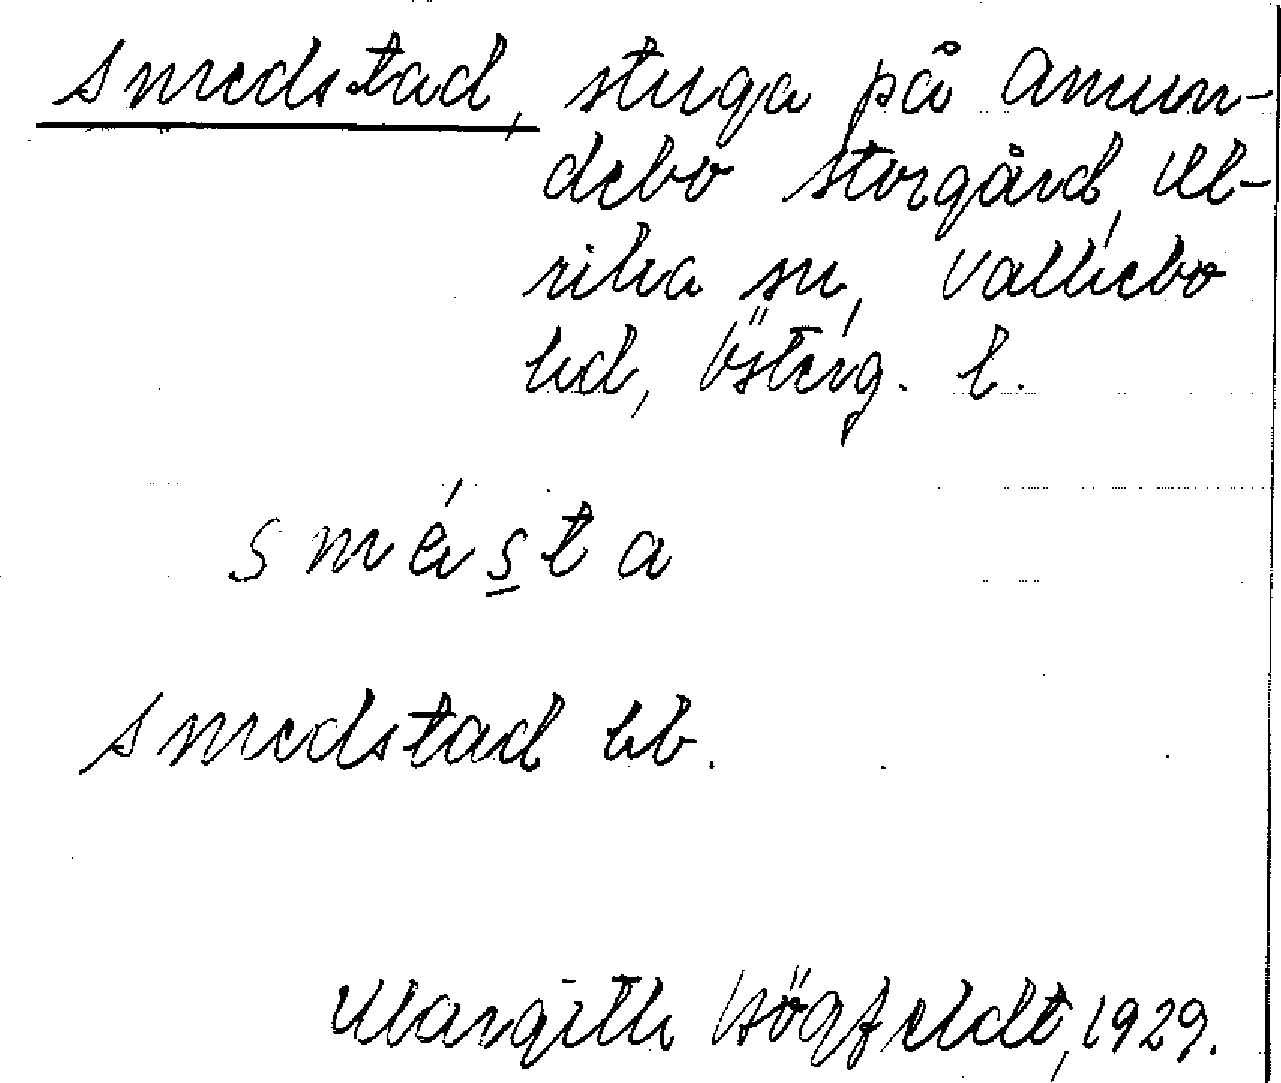 Smedstad, stuga på Amun-
debo storgård, Ul-
rika sn, Valkebo
hd, Österg. l.
smésta
Smedstad kb.
Margith Högfeldt, 1929.